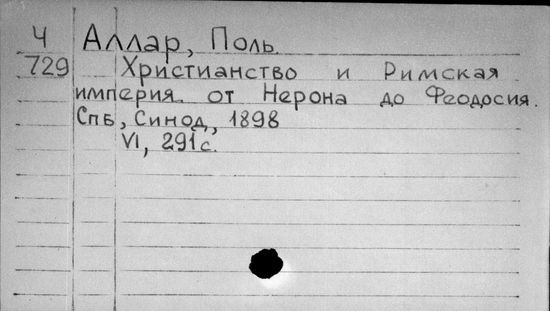 Ч Аллар, Поль.
729 Христианство и Римская
империя от Нерона до Феодосия.
Спб, Синод, 1898
VI, 291 с.